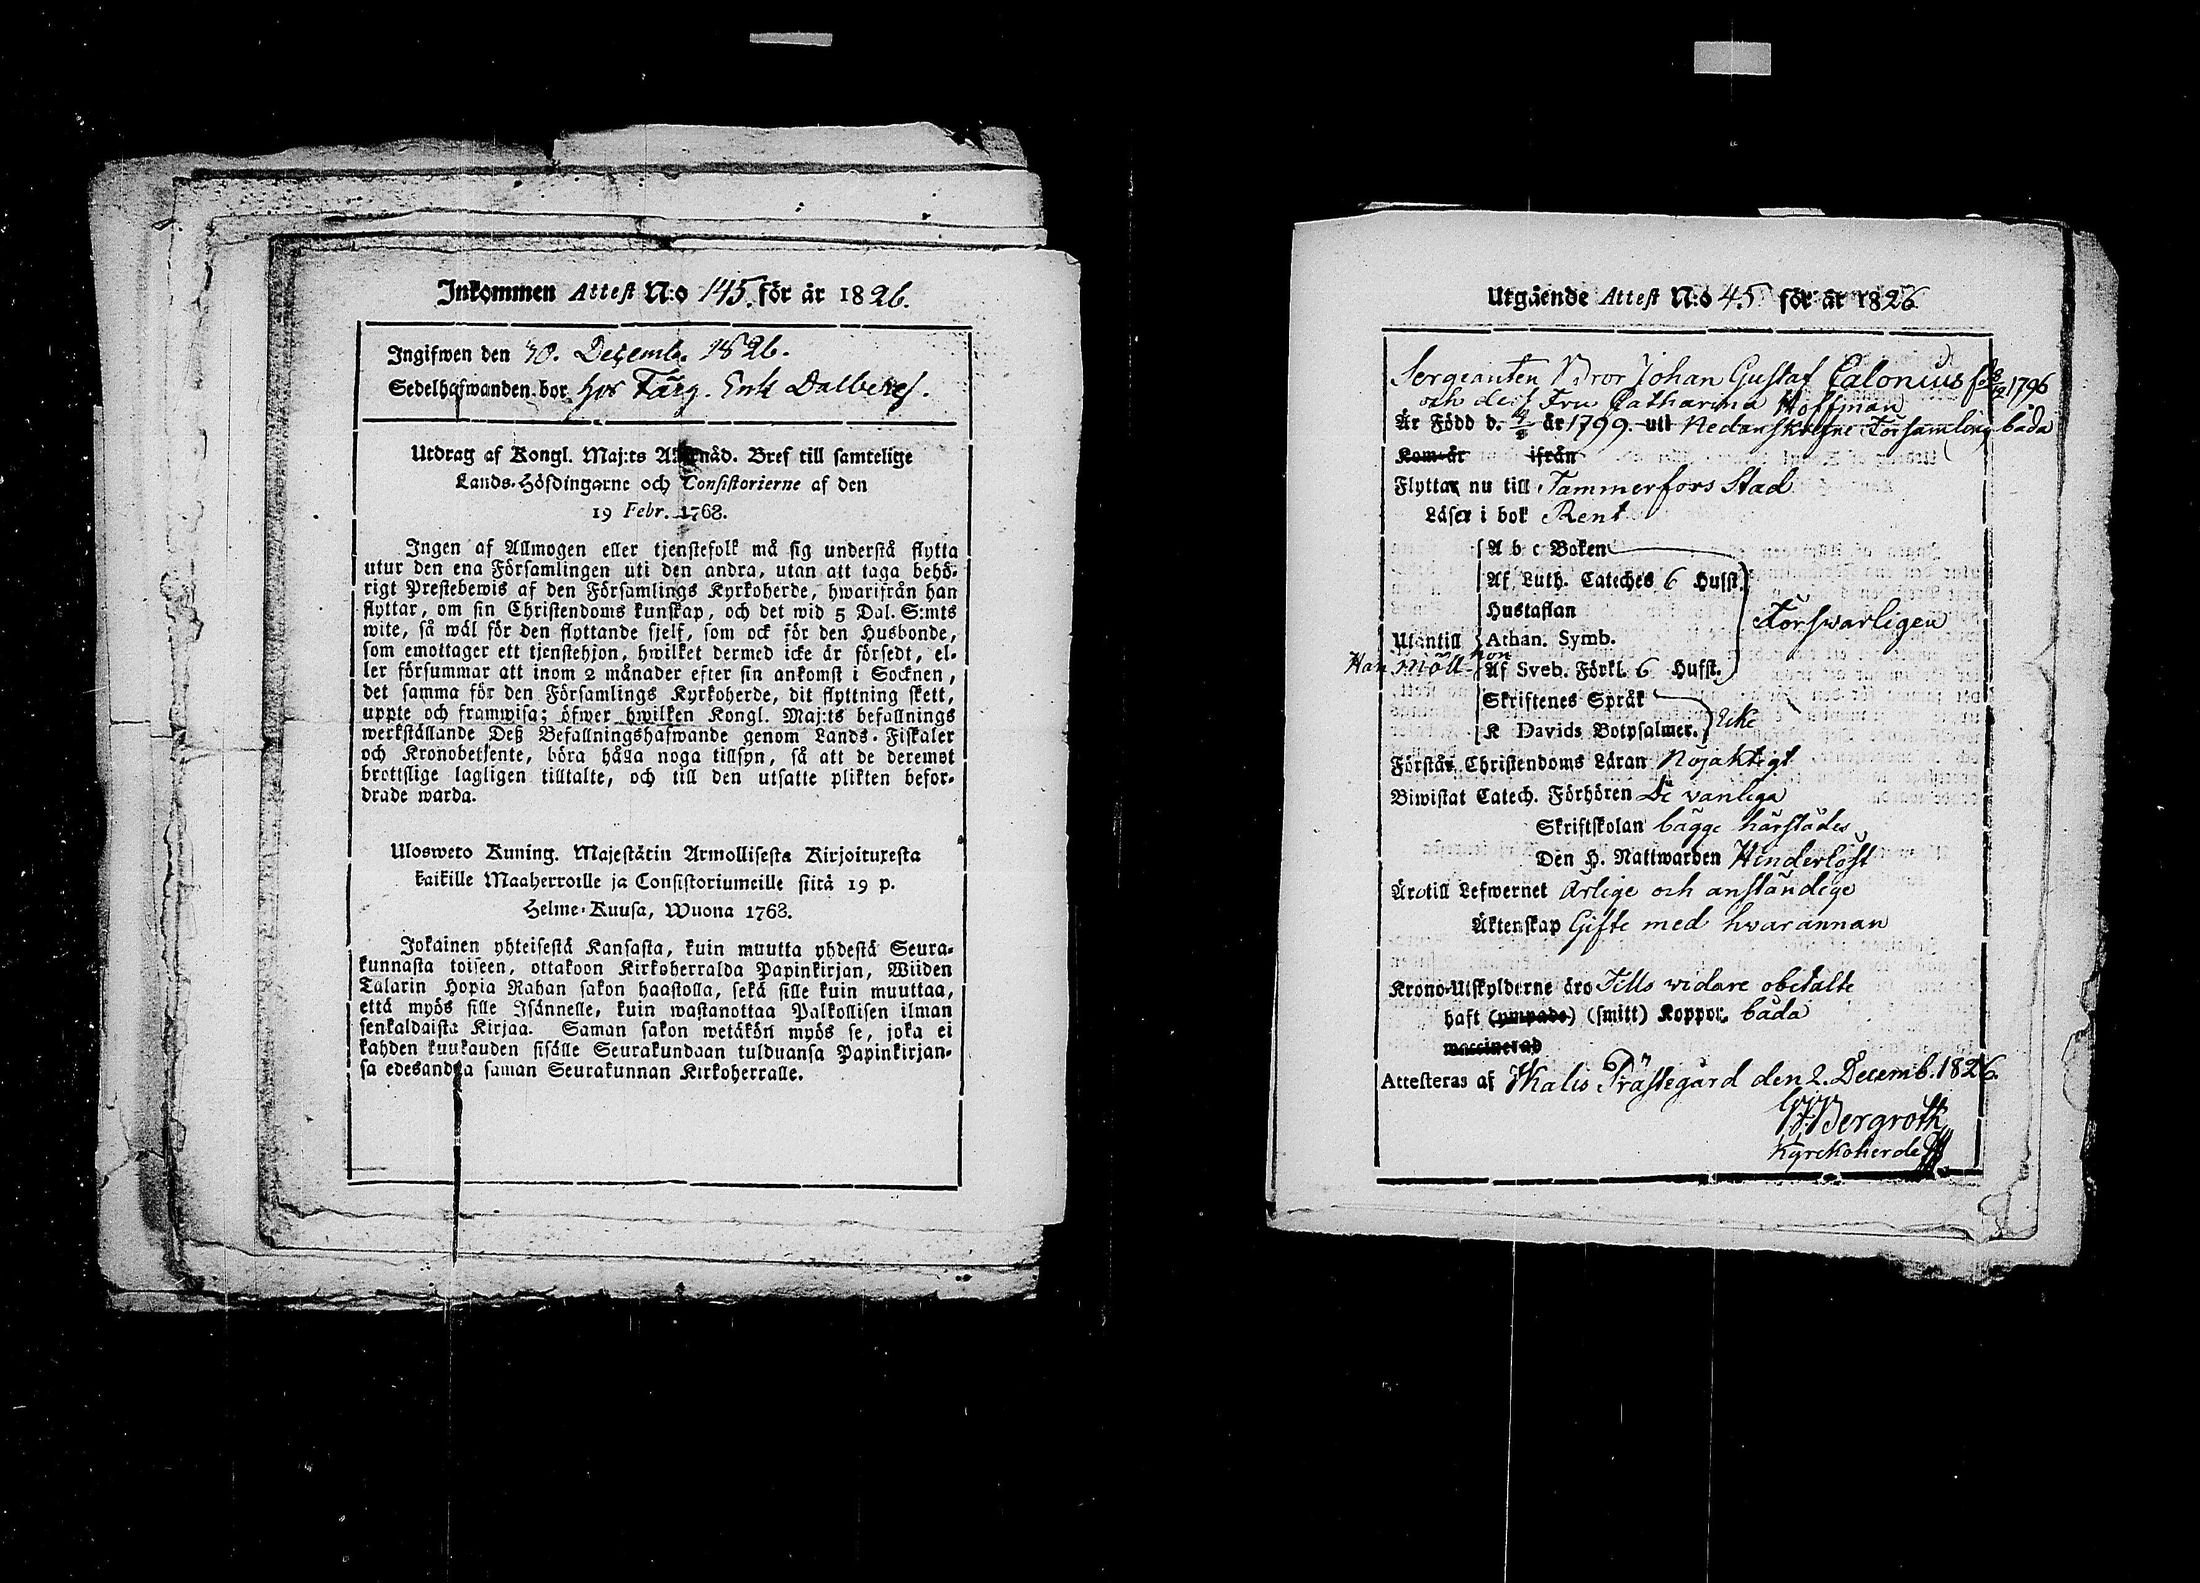 Inkommen Attest N:o 145. för år 1826.
Ingifwen den 30. Decemb. 1826.
Sedelhafwanden bor hos Färg. Enk Dalberg.
Utdrag af Kongl. Maj:ts Allernåd. Bref till samtelige
Lands-Höfdingarne och Consistorierne af den
19 Febr. 1768.
Ingen af Allmogen eller tjenstefolk må sig understå flytta
utur den ena Församlingen uti den andra, utan att taga behö-
rigt Prestebewis af den Församlings Kyrkoherde, hwarifrån han
flyttar, om sin Christendoms kunskap, och det wid 5 Dal. S:mts
wite, så wäl för den flyttande sjelf, som ock för den Husbonde,
som emottager ett tjenstehjon, hwilket dermed icke är försedt, el-
ler försummar att inom 2 månader efter sin ankomst i Socknen,
det samma för den Församlings Kyrkoherde, dit flyttning skett,
uppte och framwisa; öfwer hwilken Kongl. Maj:ts befallnings
werkställande Deß Befallningshafwande genom Lands-Fiskaler
och Kronobetjente, böra håga noga tillsyn, så att de deremot
brottslige lagligen tilltalte, och till den utsatte plikten befor-
drade warda.
Ulosweto Kuning. Majestätin Armollisesta Kirjoituxesta
kaikille Maaherroille ja Consistoriumeille siitä 19 p.
Helme-Kuusa, Wuona 1768.
Jokainen yhteisestä Kansasta, kuin muutta yhdestä Seura-
kunnasta toiseen, ottakoon Kirkoherralda Papinkirjan, Wiiden
Talarin Hopia Rahan sakon haastolla, sekä sille kuin muuttaa,
että myös sille Isännelle, kuin wastanottaa Palkollisen ilman
senkaldaista Kirjaa. Saman sakon wetäkön myös se, joka ei
kahden kuukauden sisälle Seurakundaan tulduansa Papinkirjan-
sa edesanda saman Seurakunnan Kirkoherralle.
Utgående Attest N:o 45 för år 1826
Sergeanten Bror Johan Gustaf Calonius f. 1796
och dess Fru Catharina Hoffman
Är Född d. år 1799. uti Nedanskrefne Församling båda
Kom år ifrån
Flyttar nu till Tammerfors Stad
Läser i bok Rent
A b c Boken
Af Luth. Cateches 6 Hufst.
Hustaflan
Försvarligen
Utantill Athan. Symb.
Han Moll. hon
Af Sveb. Förkl. 6 Hufst.
Skriftenes Språk
K Davids Botpsalmer. Icke
Förstår Christendoms Läran Nöjaktigt
Biwistat Catech. Förhören De vanliga
Skriftskolan bägge härstädes
Den H. Nattwarden Hinderlöst
Äro till Lefwernet Ärlige och anständige
Äktenskap Gifte med hvarannan
Krono-Utskylderne äro Tills widare obetalte
haft (ympade) (smitt) Koppor. båda
waccinerad
Attesteras af Ikalis Prästegård den 2. Decemb. 1826.
Bergroth
Kyrckoherde